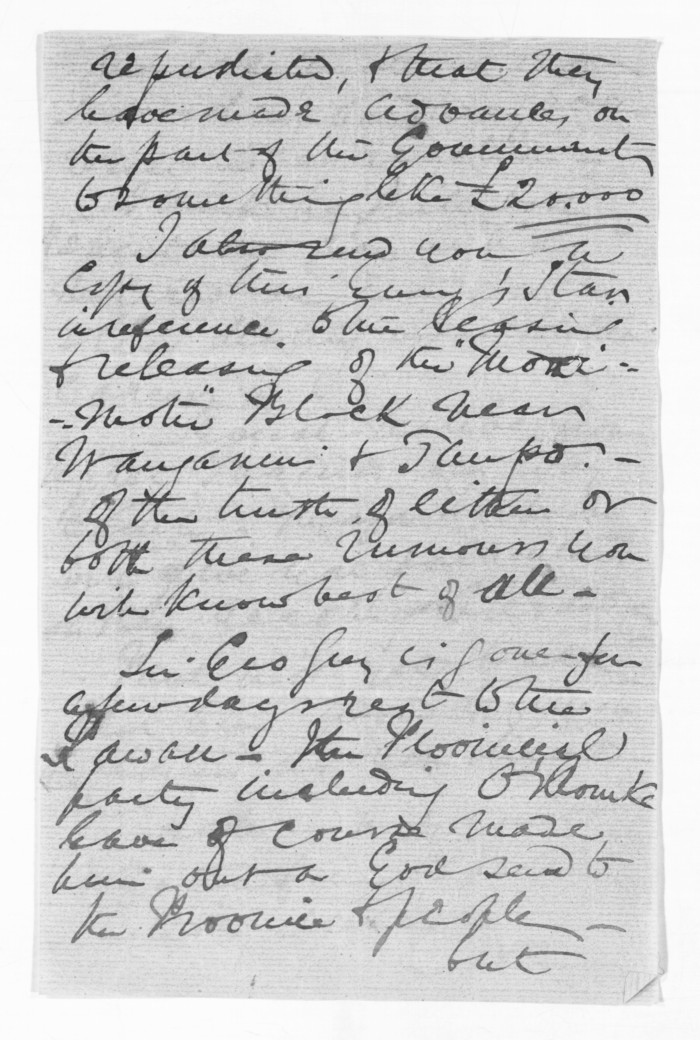 repudiated, & that they
have made advances on
the part of the Government
to something like £20.000
I also send you a
Copy of this Eveng's Star
in reference to the leasing
& releasing of the "Moti-
-motu" Block near
Wanganui & Taupo. -
Of the truth of either or
both these rumours you
will know best of all -
Sir Geo Grey is gone for
a few days rest to the
Kawau - The Provincial
party including O'Rourke
have of course made
him out a God send to
the Province & people -
but